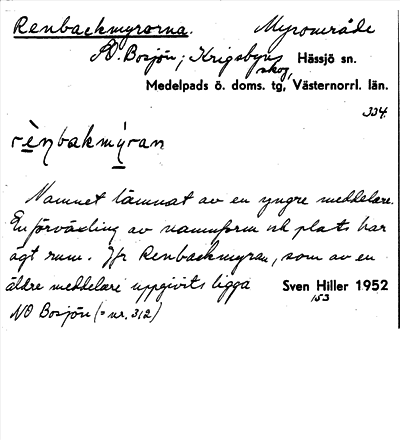 Renbackmyrorna. Myrområde
Bosjön; Krigsbyns skog, Hässjö sn.
Medelpads ö. doms. tg, Västernorrl. län.
334.
rènbakmýran
Namnet lämnat av en yngre meddelare.
En förväxling av namnform och plats har
ägt rum. Jfr Renbackmyran, som av en
äldre meddelare uppgivits ligga Sven Hiller 1952
153
NO Bosjön (= nr. 312)